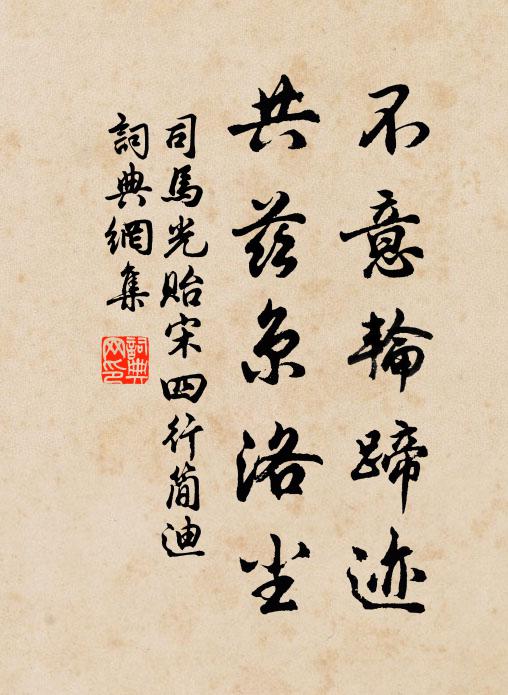 不意輪蹄迹
共茲京洛尘
司馬光貽宋四行简迪
詞典網集
詞典
网印